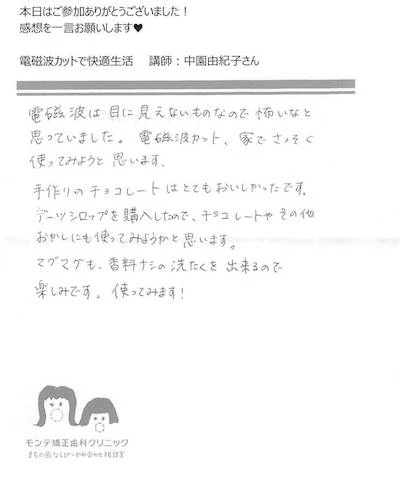 本日はご参加ありがとうございました！
感想を一言お願いします♥
電磁波カットで快適生活　講師：中園由紀子さん
電磁波は目に見えないものなので怖いなと
思っていました。電磁波カット、家でさっそく
使ってみようと思います。
手作りのチョコレートはとてもおいしかったです。
デーツシロップを購入したので、チョコレートやその他
おかしにも使ってみようかと思います。
マグマグも、香料ナシの洗たくを出来るので
楽しみです。使ってみます！
モンテ矯正歯科クリニック
まちの歯ならび・かみ合わせ相談室